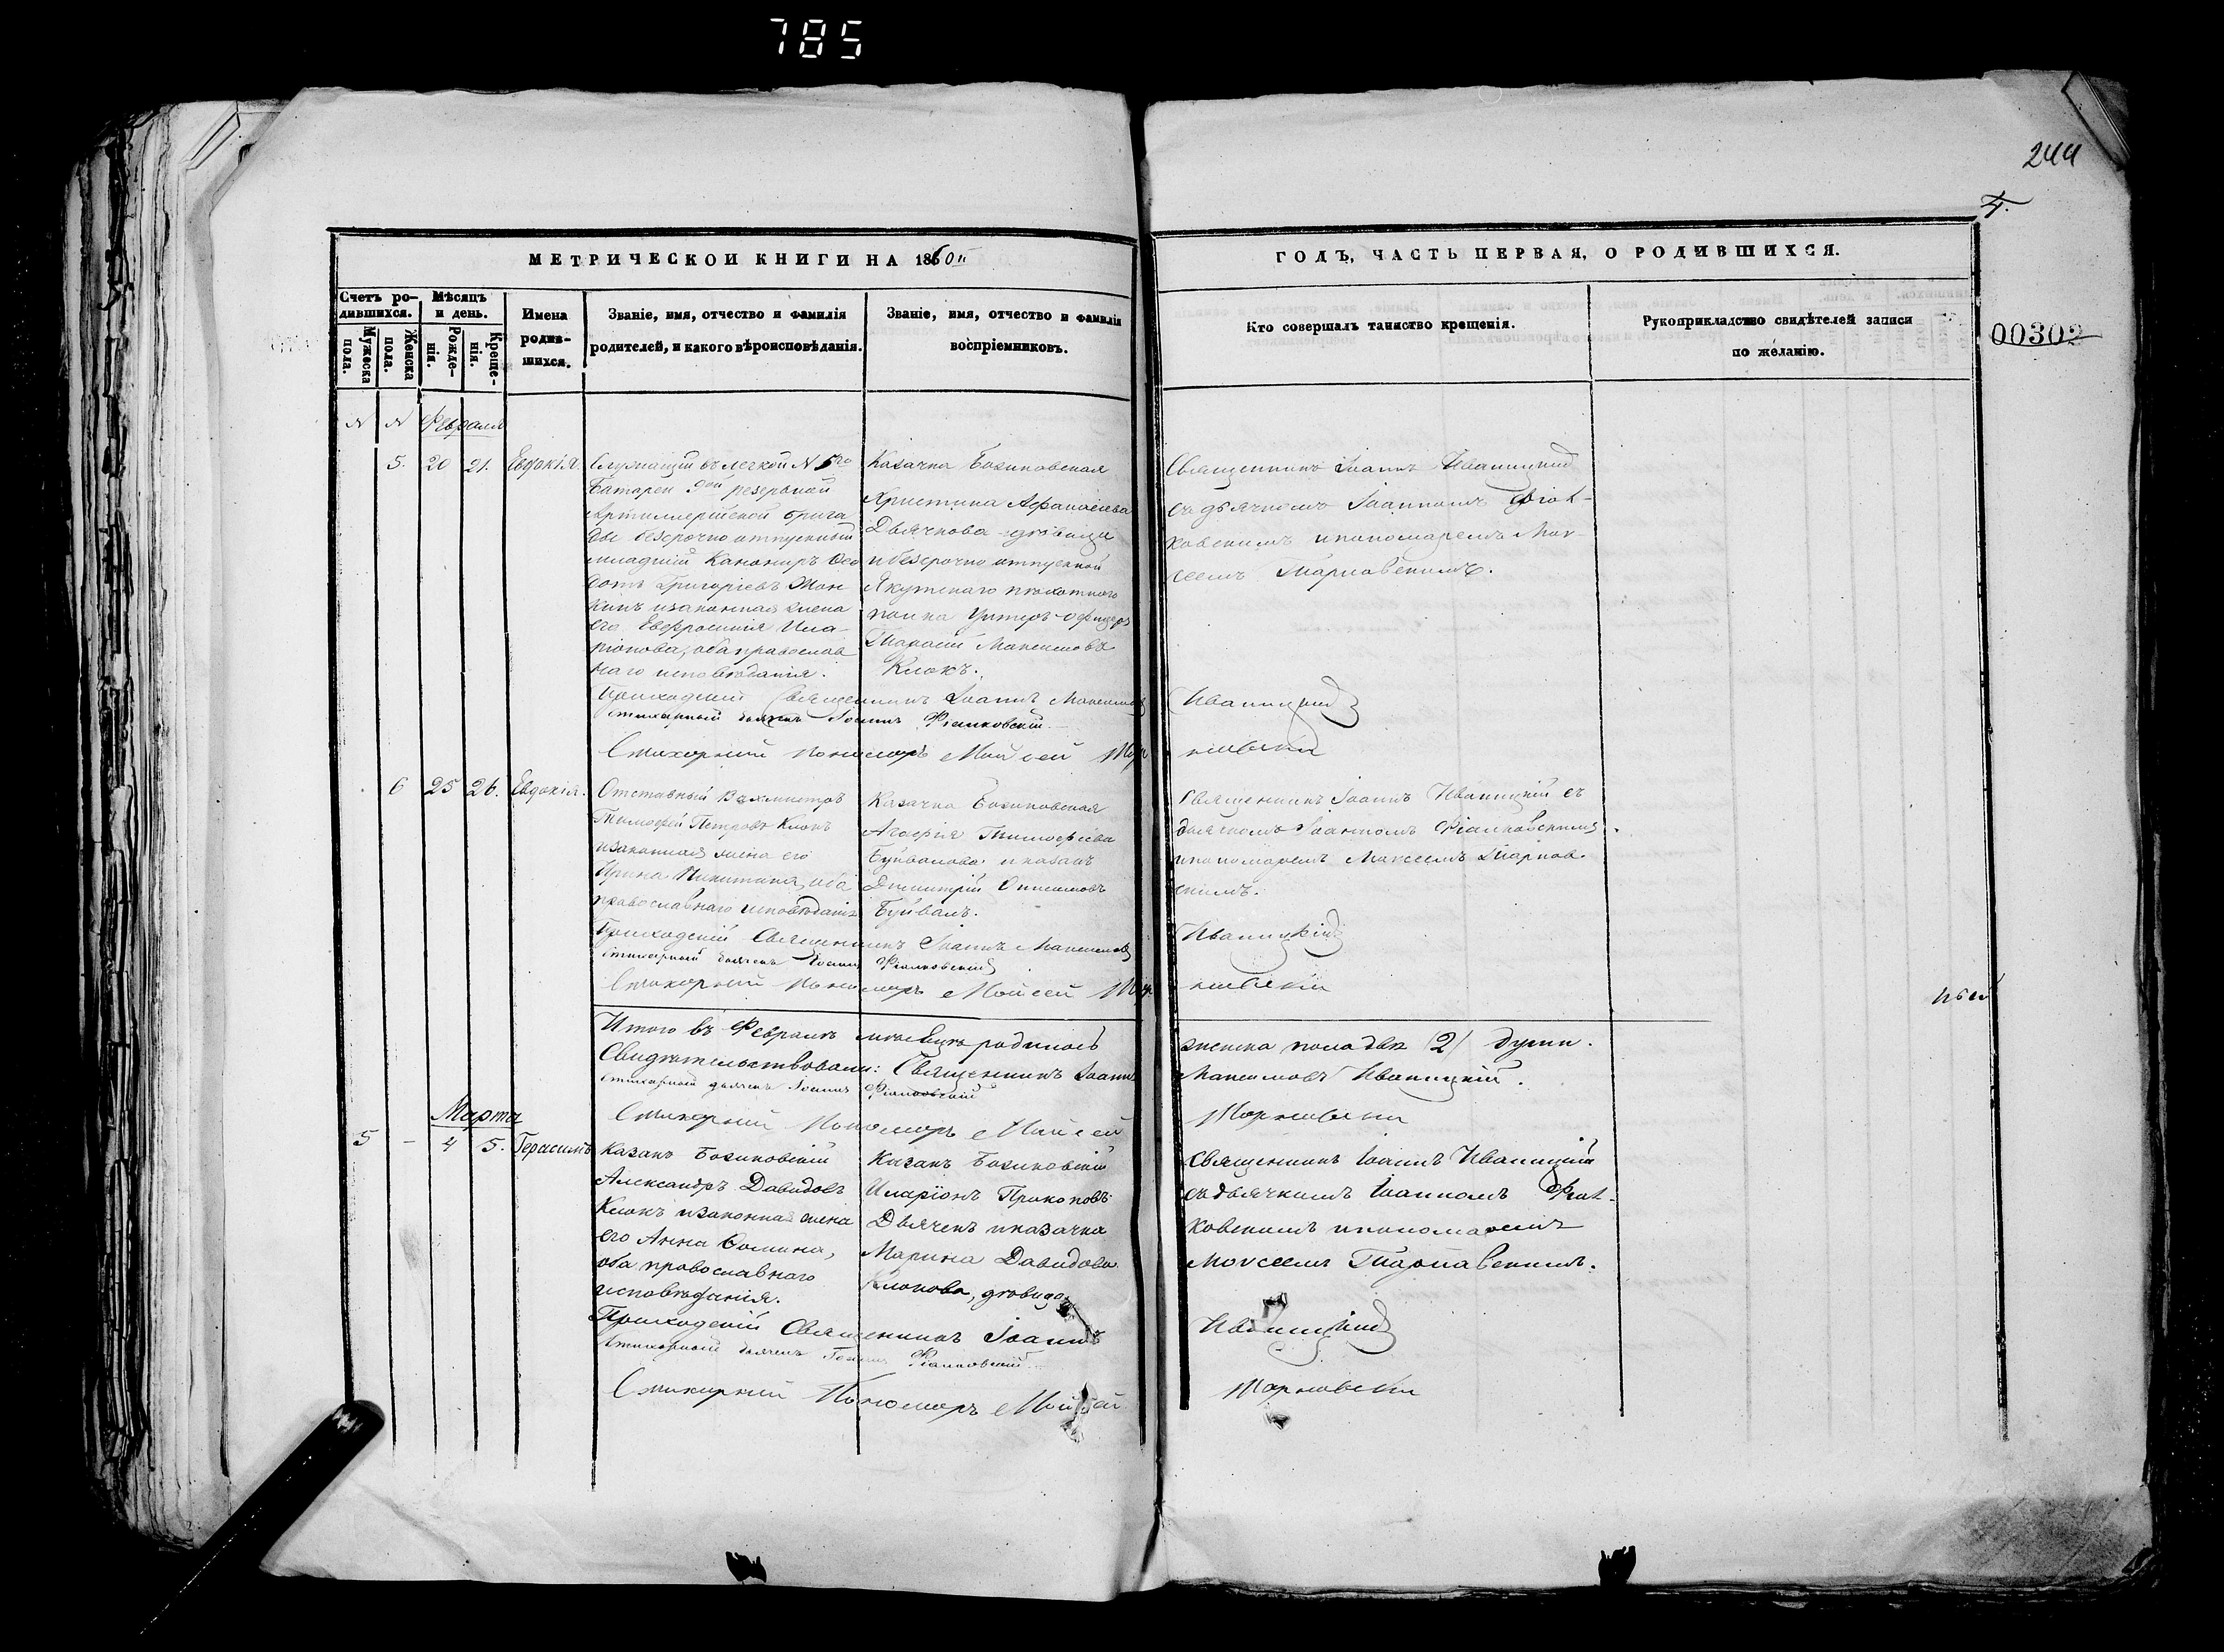 785
244
4.
МЕТРИЧЕСКОИ КНИГИ НА 1860й
ГОДЪ, ЧАСТЬ ПЕРВАЯ, О РОДИВШИХСЯ.
00302
Счетъ ро-
дившихся.
Мужеска
пола.
Женска
пола.
Мѣсяцъ
и день.
Рожде-
нія.
Креще-
нія.
Имена
родив-
шихся.
Званіе, имя, отчество и фамилія
родителей, и какого вѣроисповѣданія.
Званіе, имя, отчество и фамилія
воспріемниковъ.
Кто совершалъ таинство крещенія.
Рукоприкладство свидѣтелей записи
по желанію.
N N Февраля
5. 20 21. Евдокія.
Служащій въ легкой N 5го
Батареи 9ой резервной
Артиллерійской брига
ды безсрочно отпускный
младшій Канониръ Фео
дотъ Григоріевъ
изаконная жена
его Евфросинія Ила-
ріонова, оба православ
наго исповѣданія.
Казачка Бозиковская
Христина Афанасіева
Дьячкова дѣвица
и безсрочно отпускной
Якутскаго пѣхотнаго
полка Унтеръ-офицеръ
Тарасій Максимовъ
Клокъ.
Священникъ Іоаннъ Иваницкій
съ дьячкомъ Іоанномъ Фіал-
ковскимъ ипономаремъ Мои-
сеемъ Тарновскимъ.
Приходскій Священникъ Іоаннъ Максимовъ Иваницкій
Стихарный дьячекъ Іоаннъ Фіалковскій
Стихарний Пономаръ Мойсей Тарновскій
6 25 26. Евдокія.
Отставный Вахмистръ
Тимофей Петровъ Клокъ
изаконная жена его
Ирина Никитина, оба
православнаго исповѣданія
Казачка Бозиковская
Агафія Тимофіева
Буйвалова и казакъ
Димитрій Онисимовъ
Буйвалъ.
Священникъ Іоаннъ Иваницкій съ
дьячкомъ Іоанномъ Фіалковскимъ
ипономаремъ Моисеемъ Тарнов-
скимъ.
Приходскій Священникъ Іоаннъ Максимовъ Иваницкій
Стихарный дьячекъ Іоаннъ Фіалковскій
Стихарний Пономаръ Мойсей Тарновскій
Итого въ Февралѣ мѣсяцѣ родилось женска пола двѣ (2) души.
Свидѣтельствовали: Священникъ Іоаннъ Максимовъ Иваницкій.
Стихарный дьячекъ Іоаннъ Фіалковскій
Стихарний Пономаръ Мойсей Тарновскій
Марта
5 - 4 5. Герасимъ
Казакъ Бозиковскій
Александръ Давидовъ
Клокъ изаконная жена
его Анна Фомина,
оба православнаго
исповѣданія.
Казакъ Бозиковскій
Иларіонъ Прокоповъ
Дьячекъ и казачка
Марина Давидова
Клокова, дѣвица
Священникъ Іоаннъ Иваницкій
съ дьячкомъ Іоанномъ Фіал-
ковскимъ ипономаремъ
Моисеемъ Тарнавскимъ.
Приходскій Священникъ Іоаннъ Иваницкій
Стихарный дьячекъ Іоаннъ Фіалковскій
Стихарний Пономаръ Мойсей Тарновскій